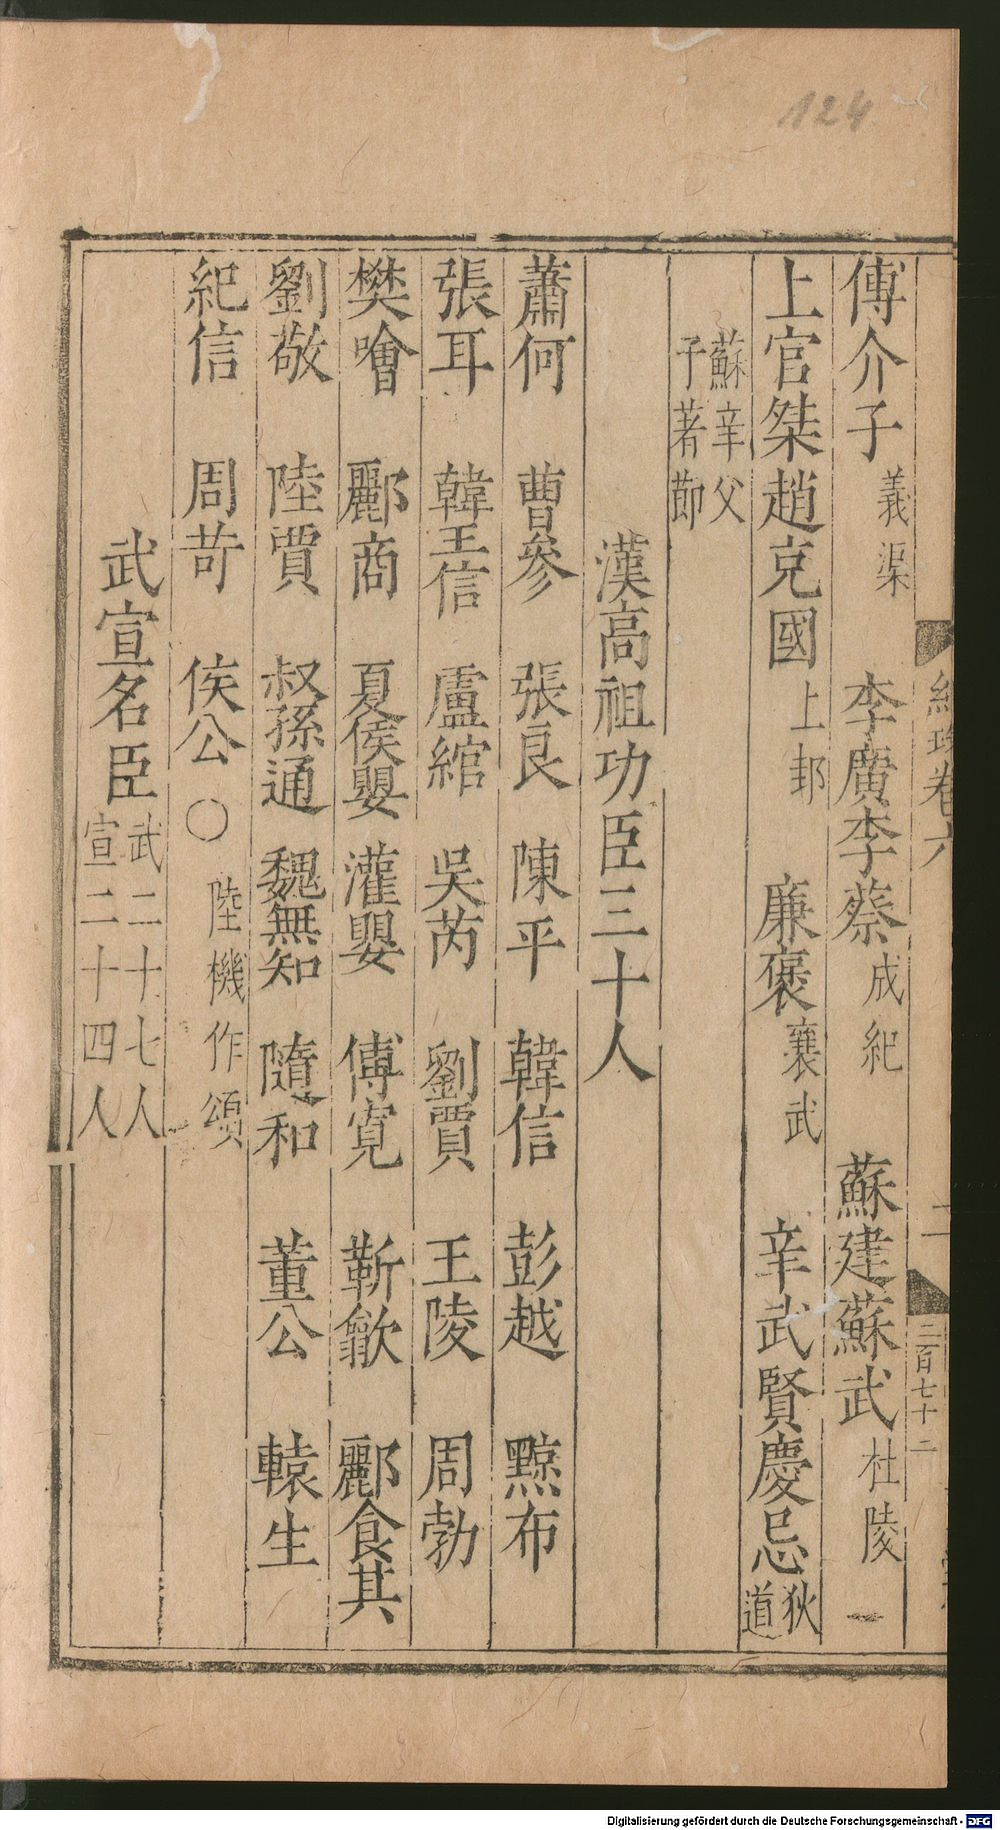 124
卷六
二
二百七十二
傅介子 義渠 李廣李蔡 成紀 蘇建蘇武 杜陵
上官桀趙充國 上邽 廉褒 襄武 辛武賢慶忌 狄道
蘇辛父子著節
漢高祖功臣三十人
蕭何 曹參 張良 陳平 韓信 彭越 黥布
張耳 韓王信 盧綰 吳芮 劉賈 王陵 周勃
樊噲 酈商 夏侯嬰 灌嬰 傅寬 靳歙 酈食其
劉敬 陸賈 叔孫通 魏無知 隨和 董公 轅生
紀信 周苛 侯公 ○ 陸機作頌
武宣名臣 武二十七人 宣二十四人
Digitalisierung gefördert durch die Deutsche Forschungsgemeinschaft - DFG